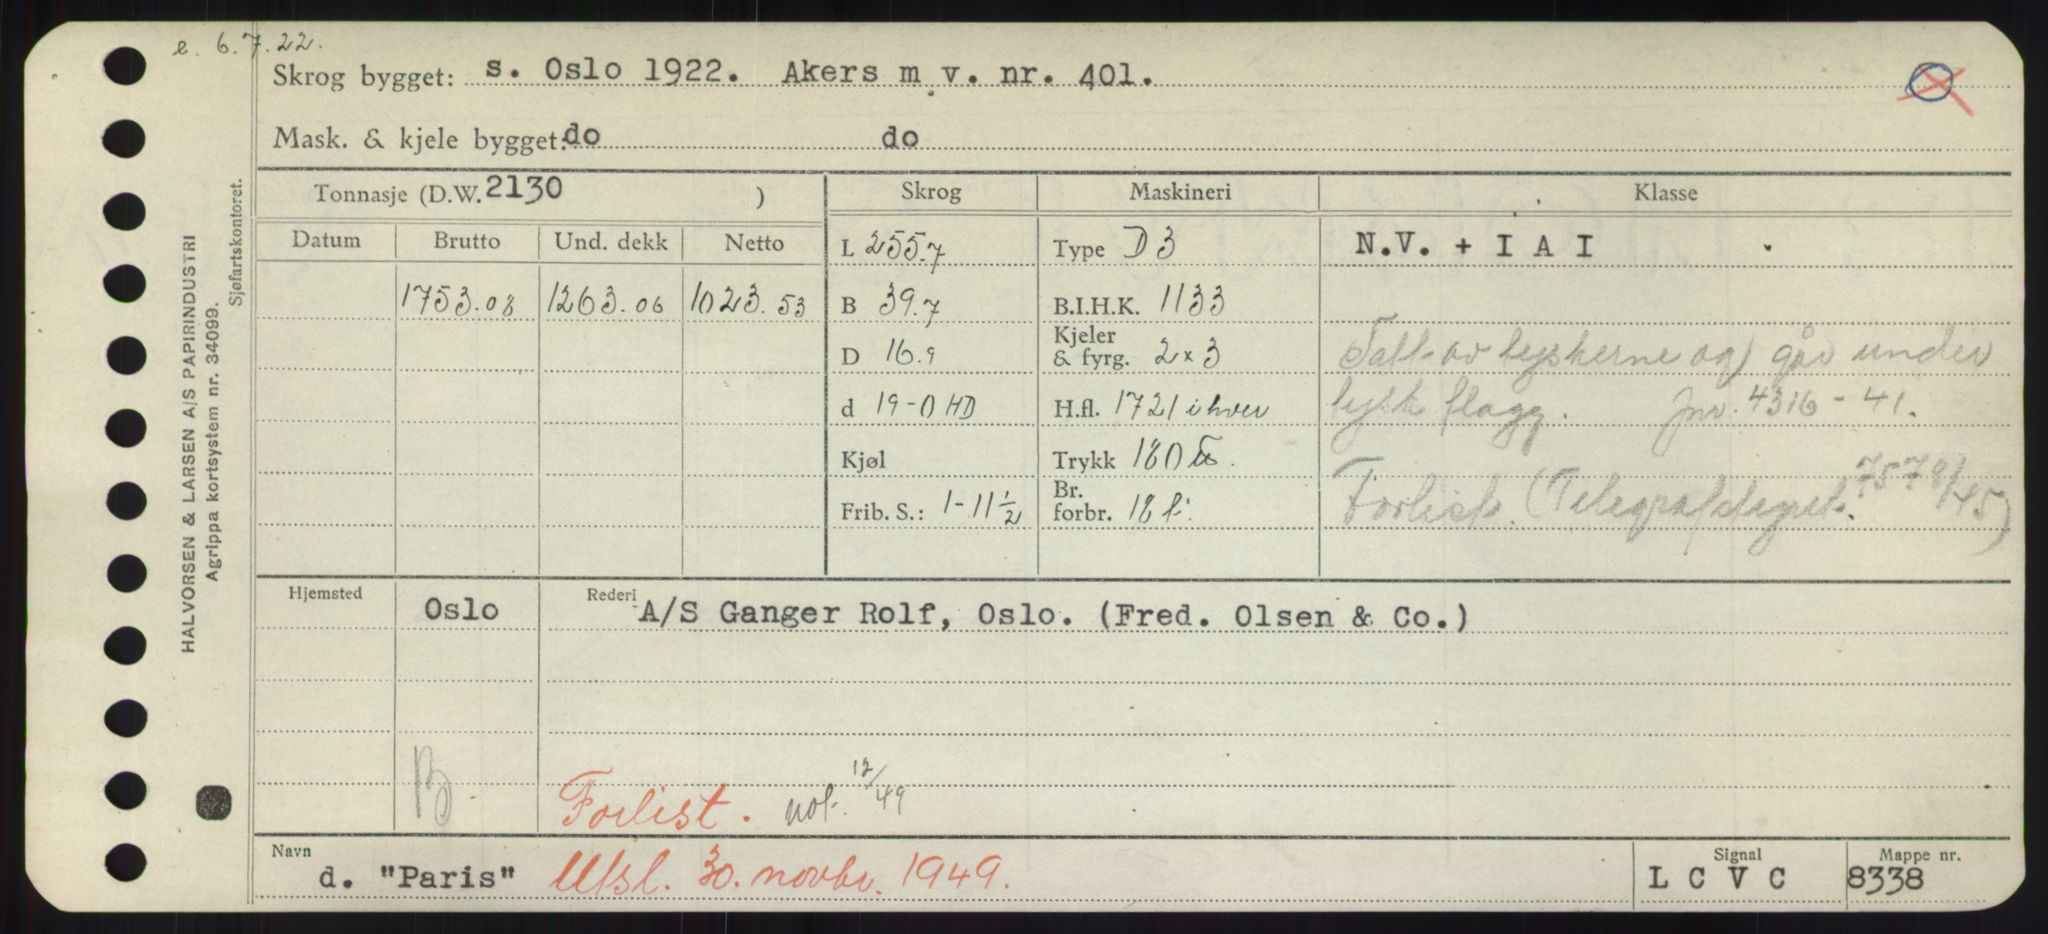 e. 6.7.22.
Skrog bygget: s. Oslo 1922. Akers m v. nr. 401.
Mask. & kjele bygget: do do
Tonnasje (D.W. 2130 ) Skrog Maskineri Klasse
Datum Brutto Und. dekk Netto
L 255.7 Type D 3 N.V. + I A I
1753.08 1263.06 1023.53 B 39.7 B.I.H.K. 1133
D 16.9 Kjeler & fyrg. 2x3 av tyskerne og går under
d 19-0 HD H.fl. 1721 i hver tysk flagg. jnr. 4316-41.
Kjøl Trykk 180
Frib. S.: 1-11 1/2 Br. forbr. 18 t. Forlist. (Telegrafstyret. 7578/45)
Hjemsted Oslo Rederi A/S Ganger Rolf, Oslo. (Fred. Olsen & Co.)
B Forlist. not. 12/49
Navn d. "Paris" Utsl. 30. novbr. 1949. Signal L C V C Mappe nr. 8338
HALVORSEN & LARSEN A/S PAPIRINDUSTRI
Agrippa kortsystem nr. 34099.
Sjøfartskontoret.